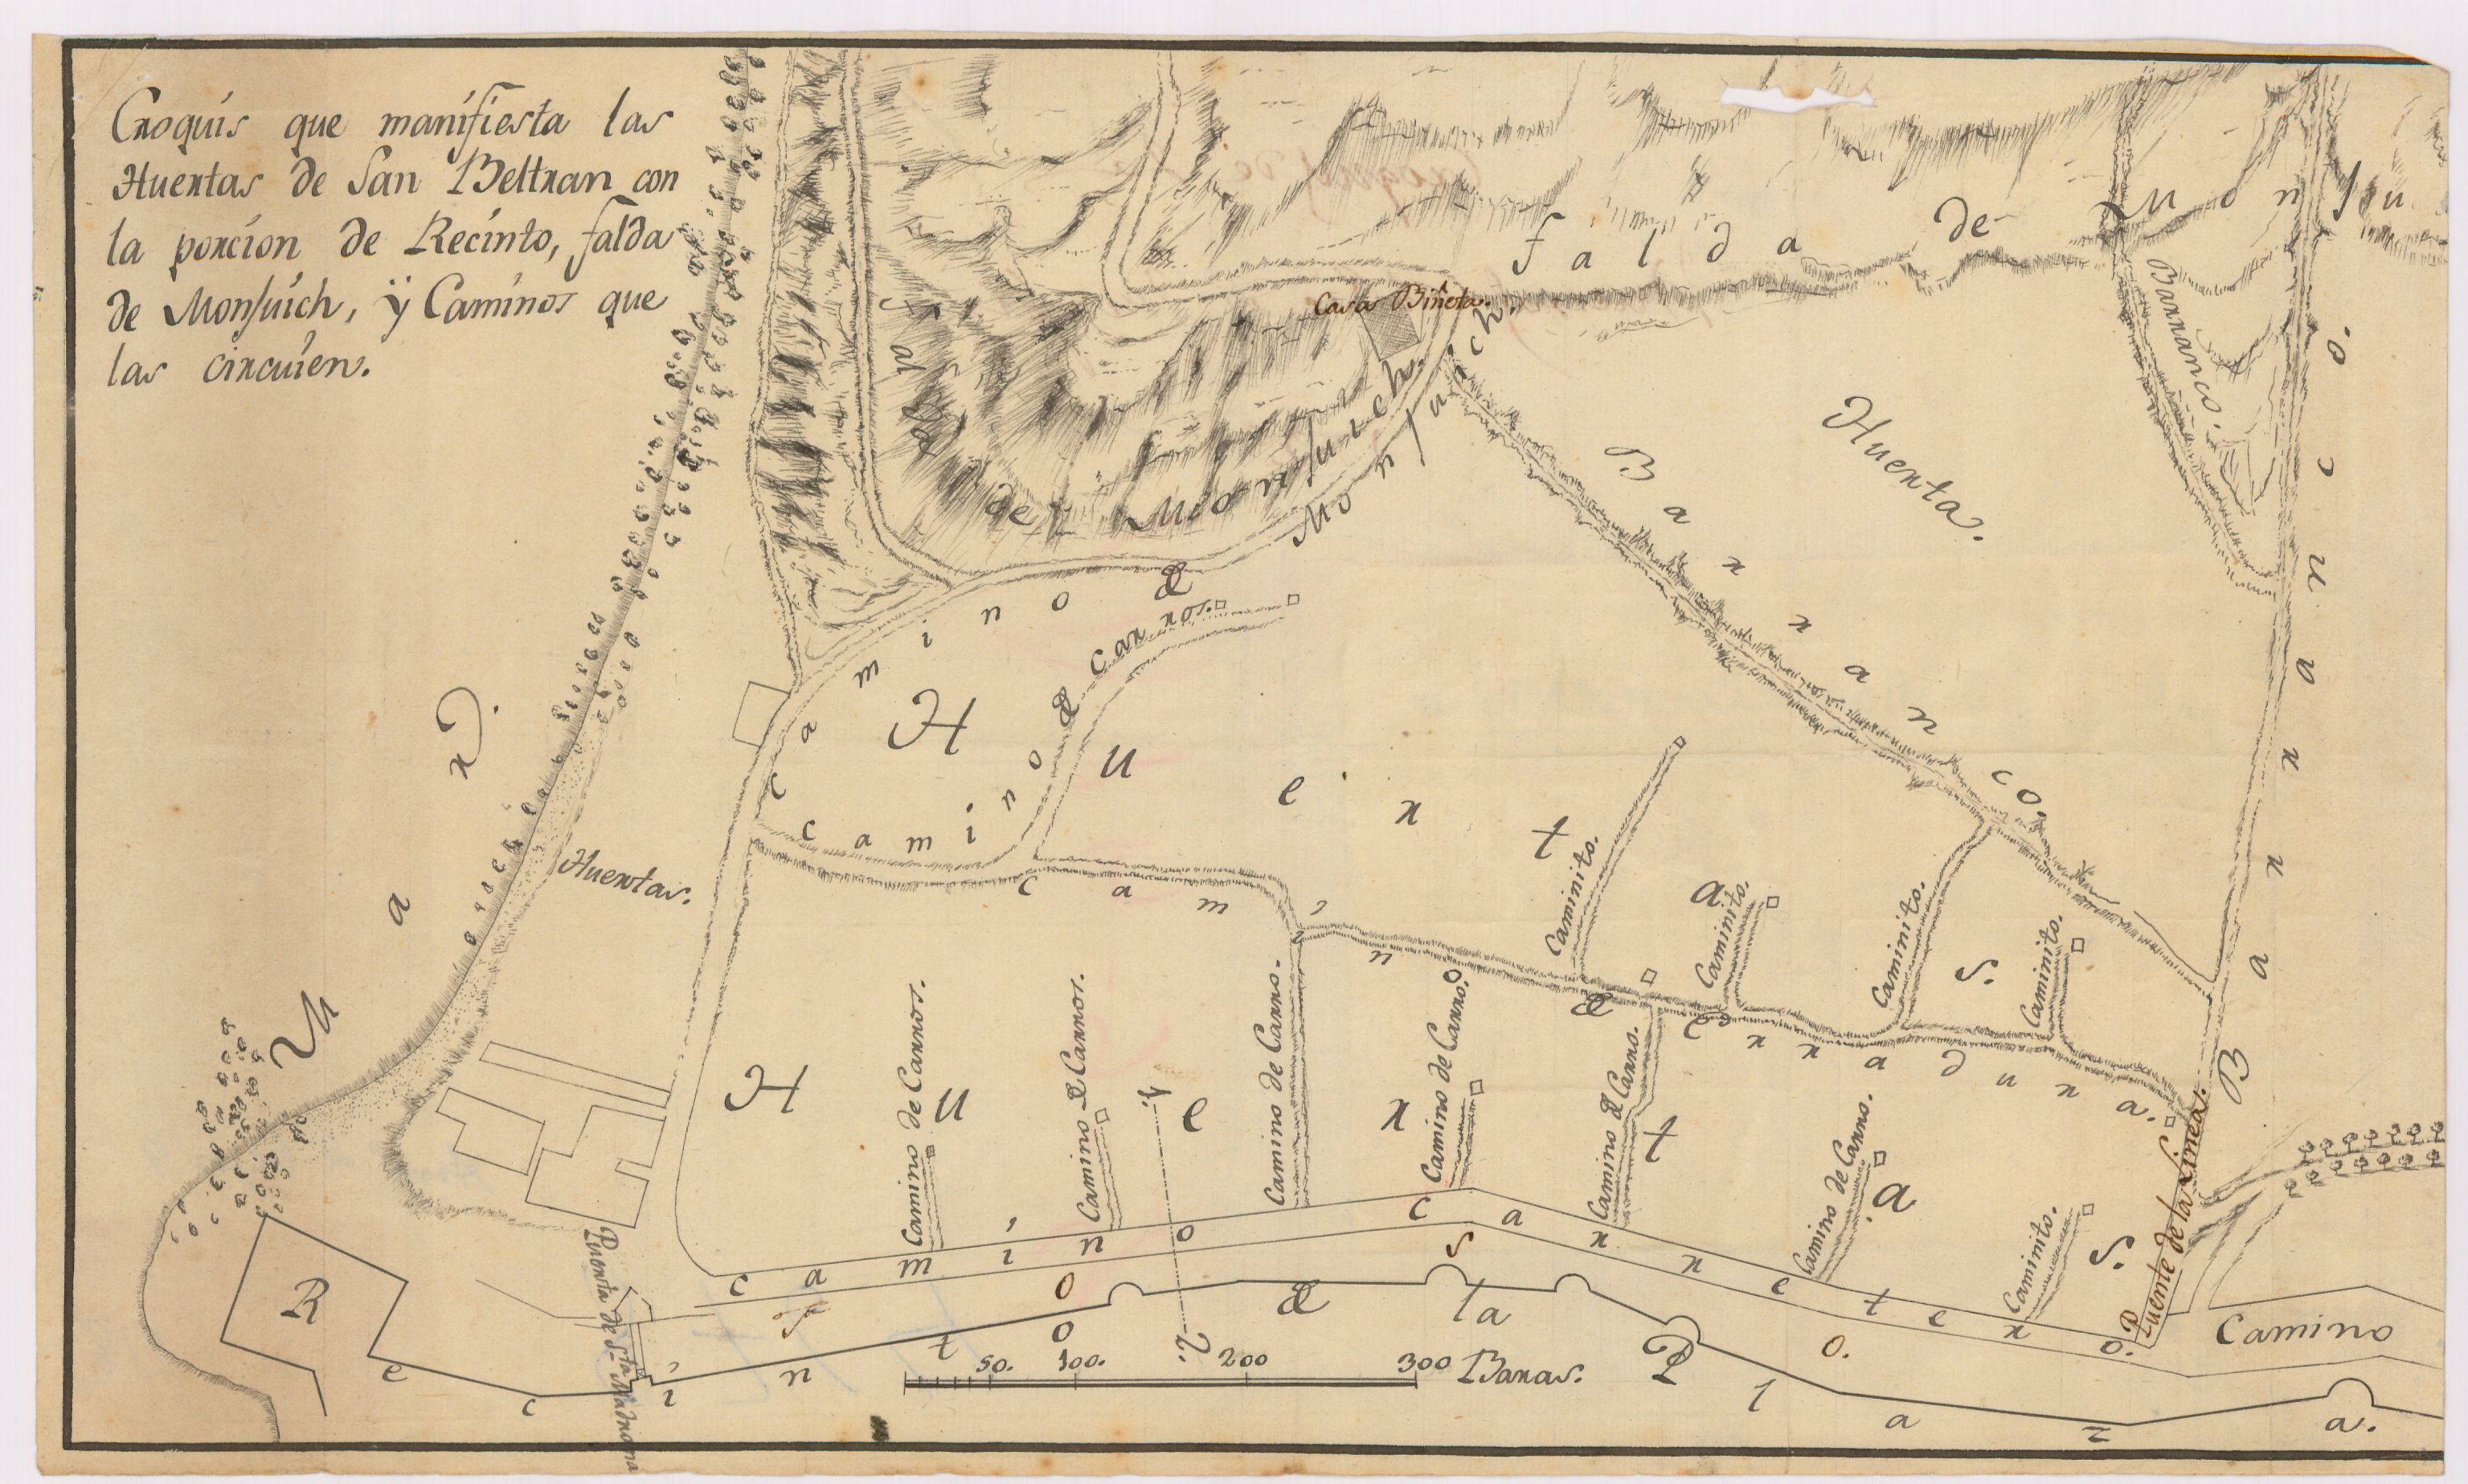 Croquis que manifiesta las
Huertas de San Beltran con
la porcion de Recinto, falda
de Monjuich, ÿ Caminos que
las circuíen.
falda de Monju
Casa Biñeta.
falda de Monjuich.
Barranco.
Huerta.
Barranco.
Barranco.
Camino de Monjuich.
Camino de carros.
Mar.
Huertas.
Huertas.
Camino de Erradura.
Caminito.
Caminito.
Caminito.
Caminito.
Huertas.
Camino de Carros.
Camino de Carros.
Camino de Carro.
Camino de Carro.
Camino de Carro.
Camino de Carro.
Caminito.
Puente de la Linea.
Camino Carretero.
Camino
Foso.
Puerta de Sta Madrona
Recinto de la Plaza.
1.
2.
50. 100. 200 300 Baras.